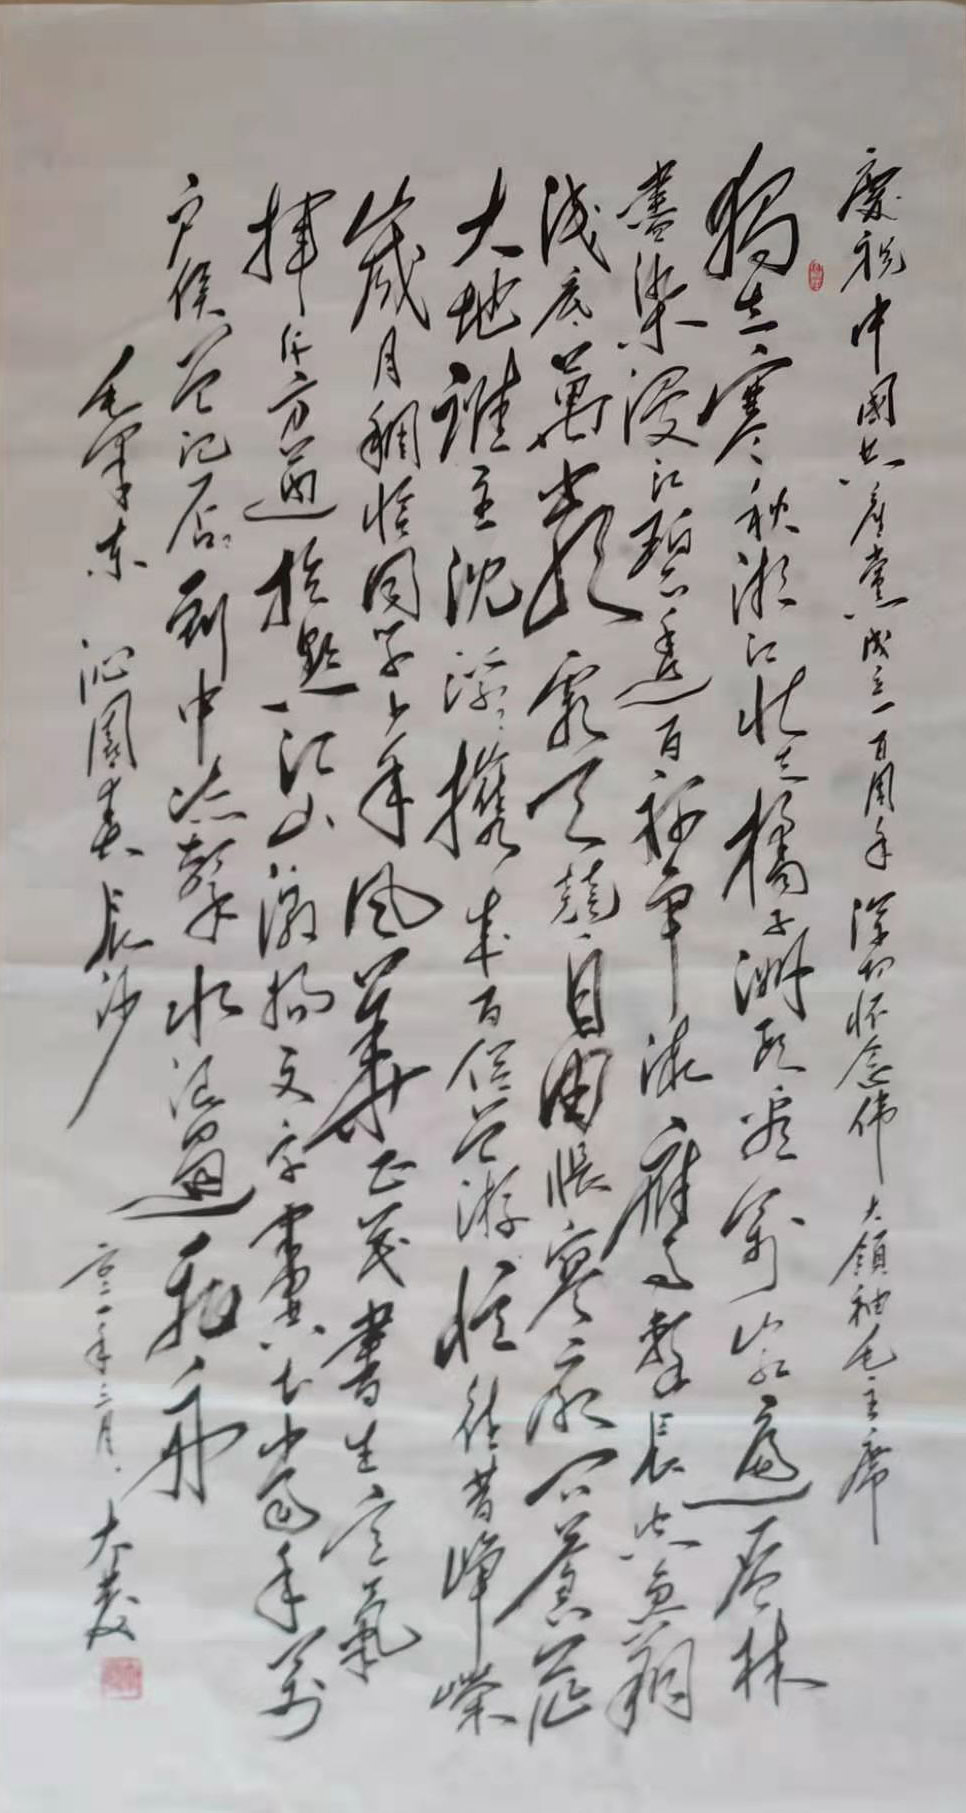 慶祝中國共產黨成立一百周年 深切怀念伟大領袖毛主席
獨立寒秋湘江北去橘子洲頭看萬山红遍层林
盡染漫江碧透百舸争流鹰擊長空魚翔
浅底萬類霜天競自由怅寥廓问蒼茫
大地誰主沈浮攜来百侣曾游忆往昔峥嵘
歲月稠恰同学少年風華正茂書生意氣
揮斥方遒指點江山激揚文字糞土当年万
户侯曾记否到中流擊水浪遏飛舟
毛泽东 沁園春 長沙